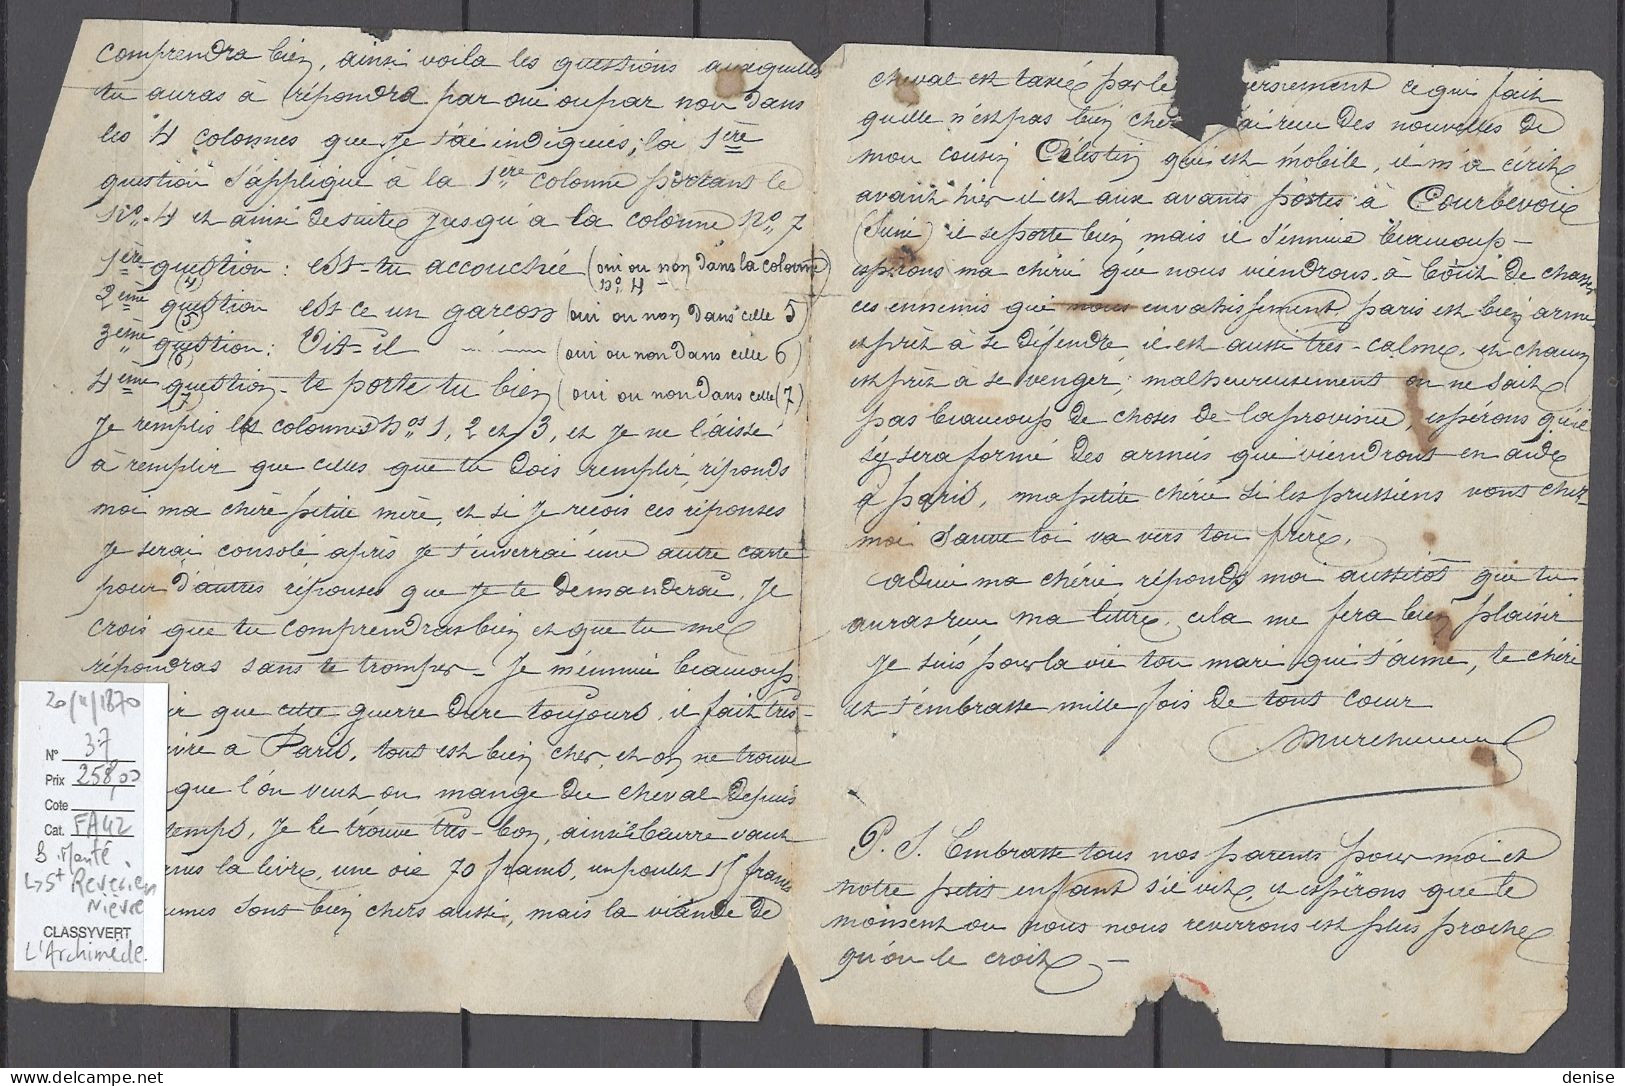 comprendra bien, ainsi voila les questions auxquelles
tu auras à répondra par oui ou par non dans
les 4 colonnes que je t'ai indiquées; la 1ère
question s'applique à la 1ère colonne portant le
No. 4 et ainsi de suite jusqu'a la colonne No 7
1ère question: est-tu accouchée (oui ou non dans la colonne
(4) No 4 -)
2ème question est ce un garcon (oui ou non dans celle 5)
(5)
3ème question: Vit-il (oui ou non dans celle 6)
(6)
4ème question - te porte tu bien (oui ou non dans celle (7)
(7)
Je remplis les colonnes Nos 1, 2 et 3, et je ne laisse
à remplir que celles que tu dois remplir, réponds
moi ma chère petite mère, et si je recois ces réponses
je serai consolé après je t'enverrai une autre carte
pour d'autres réponses que je te demanderai, Je
crois que tu comprendras bien et que tu me
répondras sans te tromper - Je m'ennuie beaucoup
que cette guerre dure toujours, il fait très-
à Paris, tout est bien cher, et on ne trouve
que l'on veut on mange du cheval depuis
temps, je le trouve très-bon, ainsi beurre vaut
la livre, une oie 70 francs, un poulet 15 francs
sont bien chers aussi, mais la viande de
cheval est taxée par le
ce qui fait
quelle n'est pas bien
des nouvelles de
mon cousin Célestin qui est mobile, il m'a écrit
avant hier il est aux avants postes à Courbevoie
(Seine) il se porte bien mais il s'ennuie beaucoup -
espérons ma chérie que nous viendrons à bout de chasser
ces ennemis qui nous envahissement, paris est bien armé
est prêt à se défendre, il est aussi très-calme, et chacun
est prêt à se venger; malheureusement on ne sait
pas beaucoup de choses de la provine, espérons qu'il
s'y sera formé des armées que viendront en aide
à paris, ma petite chérie si les prussiens vont chez
moi sauve toi va vers ton frère.
adieu ma chérie réponds moi aussitôt que tu
auras reçu ma lettre, cela me fera bien plaisir
Je suis pour la vie ton mari qui t'aime, te chéri
et t'embrasse mille fois de tout cœur
P. S. Embrasse tous nos parents pour moi et
notre petit enfant s'il vit, et espérons que le
moment ou nous nous reverrons est plus proche
qu'on le croit -
20/11/1870
N° 37
Prix 258,00
Cote
Cat. FA42
B. Monté.
L> St Reverien
Nièvre
CLASSYVERT
L'Archimède.
denise